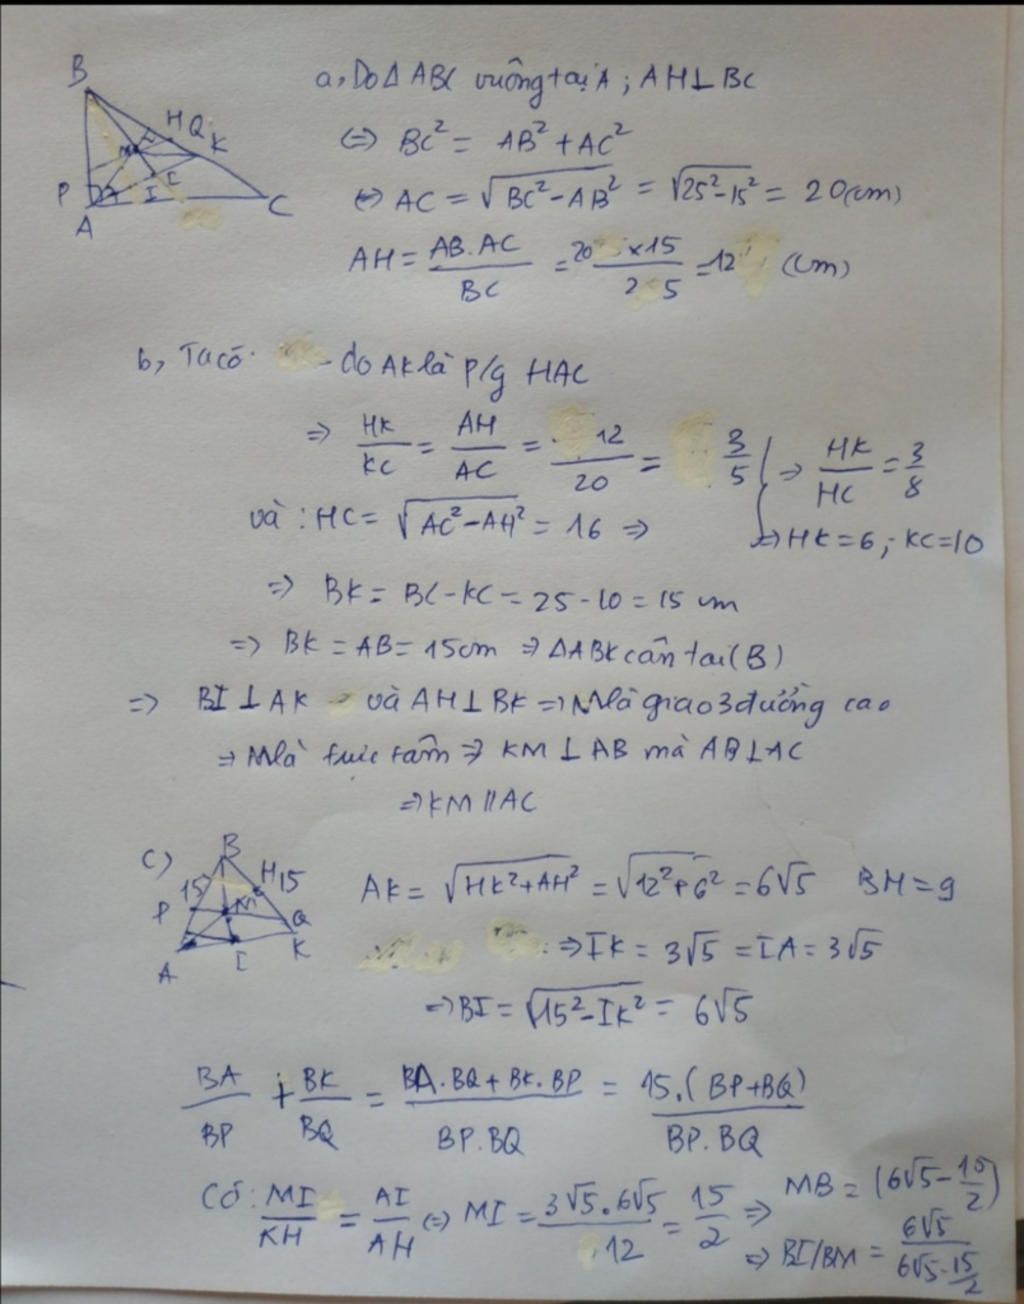 a, Do Δ ABC vuông tại A ; AH ⊥ BC
⇔ BC² = AB² + AC²
⇔ AC = √(BC² - AB²) = √(25² - 15²) = 20 (cm)
AH = AB.AC / BC = 20 × 15 / 25 = 12 (cm)
B
H Q K
M
P I I
A C
b, Ta có - do AK là p/g HAC
⇒ HK/KC = AH/AC = 12/20 = 3/5 } ⇒ HK/HC = 3/8
và : HC = √(AC² - AH²) = 16 ⇒
⇒ HK = 6 ; KC = 10
⇒ BK = BC - KC = 25 - 10 = 15 cm
⇒ BK = AB = 15cm ⇒ ΔABK cân tại (B)
⇒ BI ⊥ AK và AH ⊥ BK ⇒ M là giao 3 đường cao
⇒ M là trực tâm ⇒ KM ⊥ AB mà AB ⊥ AC
⇒ KM // AC
c)
B
15 H 15
P M Q
A I K
AK = √(HK² + AH²) = √(12² + 6²) = 6√5 BH = 9
⇒ IK = 3√5 = IA = 3√5
⇒ BI = √(15² - IK²) = 6√5
BA/BP + BK/BQ = BA.BQ + BK.BP / BP.BQ = 15.(BP + BQ) / BP.BQ
Có : MI/KH = AI/AH ⇔ MI = 3√5 . 6√5 / 12 = 15/2 ⇒ MB = (6√5 - 15/2)
⇒ BI/BM = 6√5 / 6√5 - 15/2